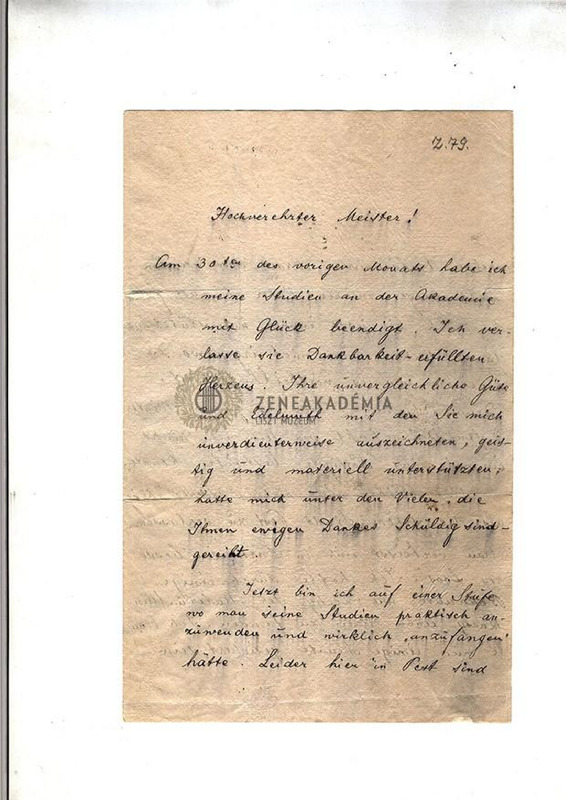 Z.79.
Hochverehrter Meister!
Am 30ten des vorigen Monats habe ich
meine Studien an der Akademie
mit Glück beendigt. Ich ver-
lasse sie Dankbarkeit-erfüllten
Herzens. Ihre unvergleichliche Güte
und Edelmuth mit den Sie mich
unverdienterweise auszeichneten, geis-
tig und materiell unterstützten;
hatte mich unter den Vielen, die
Ihnen ewigen Dankes Schüldig sind-
gereiht
Jetzt bin ich auf einer Stufe
wo man seine Studien praktisch an-
zuwenden und wirklich „anzufangen"
hätte. Leider hier in Pest sind
ZENEAKADÉMIA
LISZT MÚZEUM